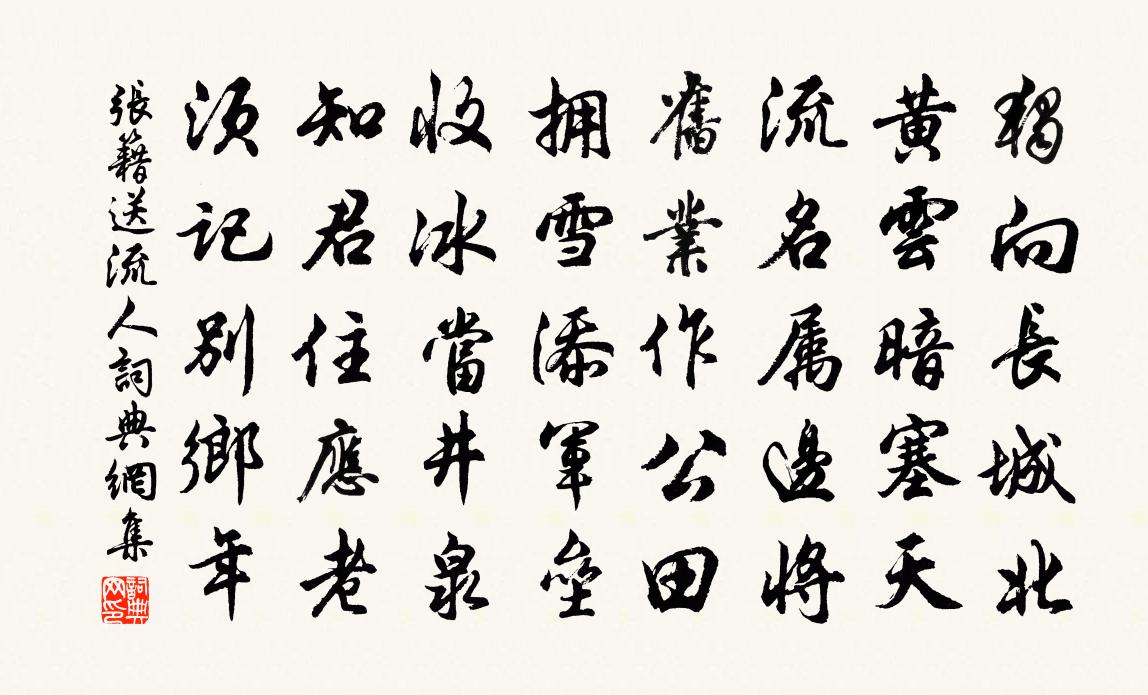 獨向長城北
黃雲暗塞天
流名屬邊將
舊業作公田
擁雪添軍壘
收冰當井泉
知君住應老
須記別鄉年
張籍送流人詞典網集
詞典網印